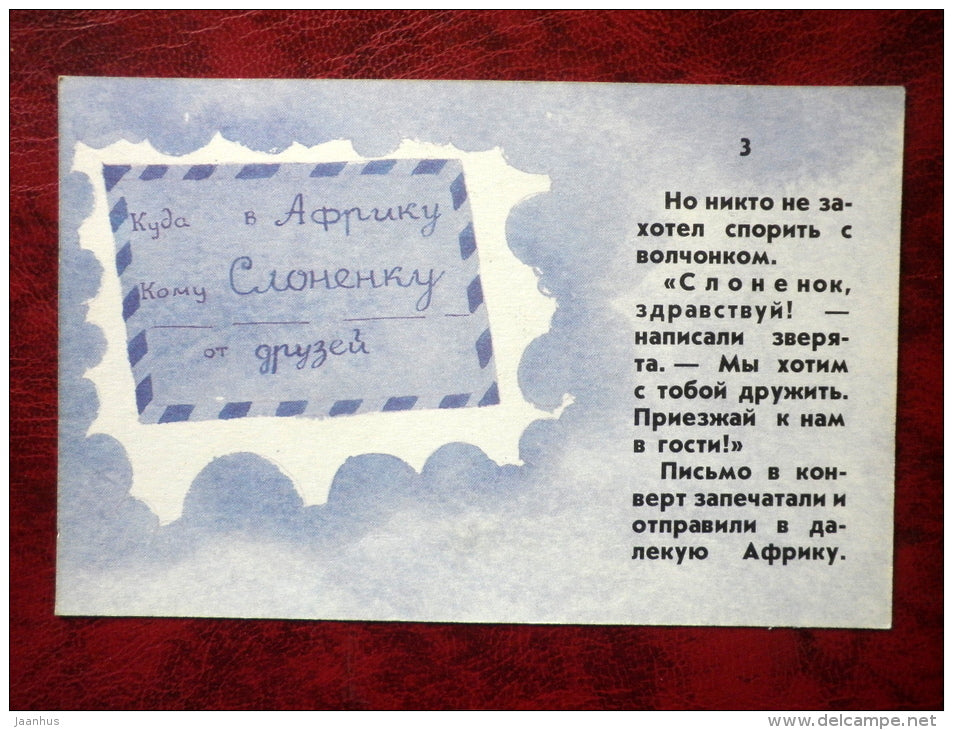 Куда в Африку
Кому Слоненку
от друзей
3
Но никто не за-
хотел спорить с
волчонком.
«Слоненок,
здравствуй! —
написали зверя-
та. — Мы хотим
с тобой дружить.
Приезжай к нам
в гости!»
Письмо в кон-
верт запечатали и
отправили в да-
лекую Африку.
jaanhus
www.delcampe.net